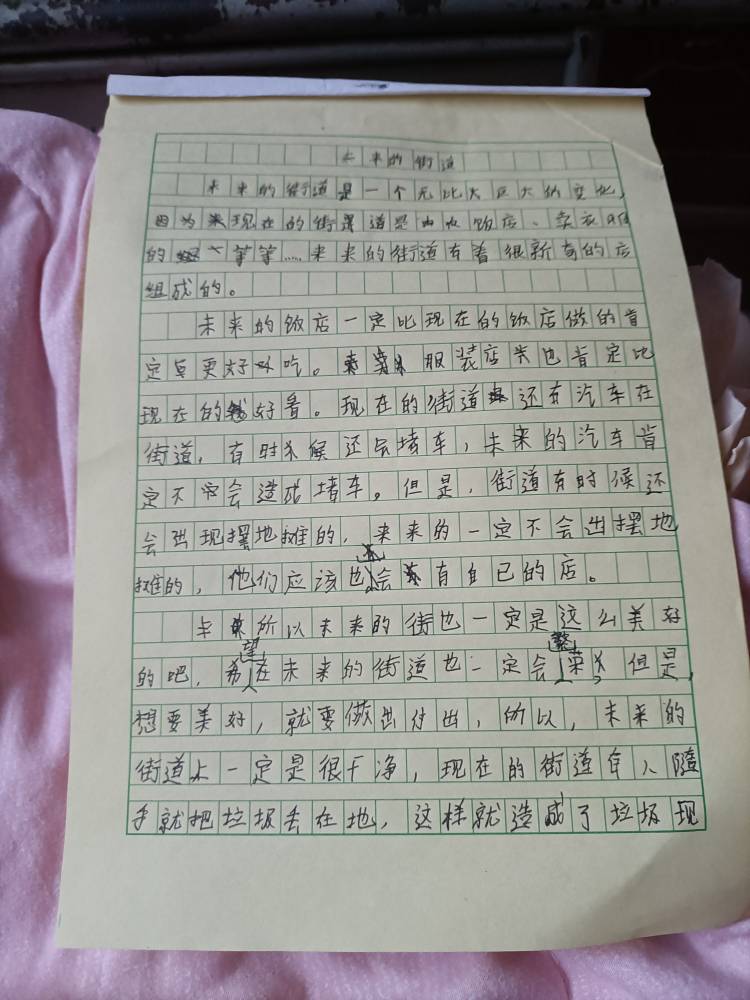 未来的街道
未来的街道是一个无比大巨大的变化,
因为现在的街道是由饭店、卖衣
的等等……未来的街道有着很新奇的店
组成的。
未来的饭店一定比现在的饭店做的肯
定更好吃。服装店类也肯定比
现在的好看。现在的街道还有汽车在
街道,有时候还会堵车,未来的汽车肯
定不会造成堵车。但是,街道有时候还
会出现摆地摊的,未来的一定不会出摆地
摊的,他们应该也会有自己的店。
所以未来的街也一定是这么美好
的吧,希望在未来的街道也一定会繁荣,但是,
想要美好,就要做出付出,所以,未来的
街道上一定是很干净,现在的街道有人随
手就把垃圾丢在地,这样就造成了垃圾现